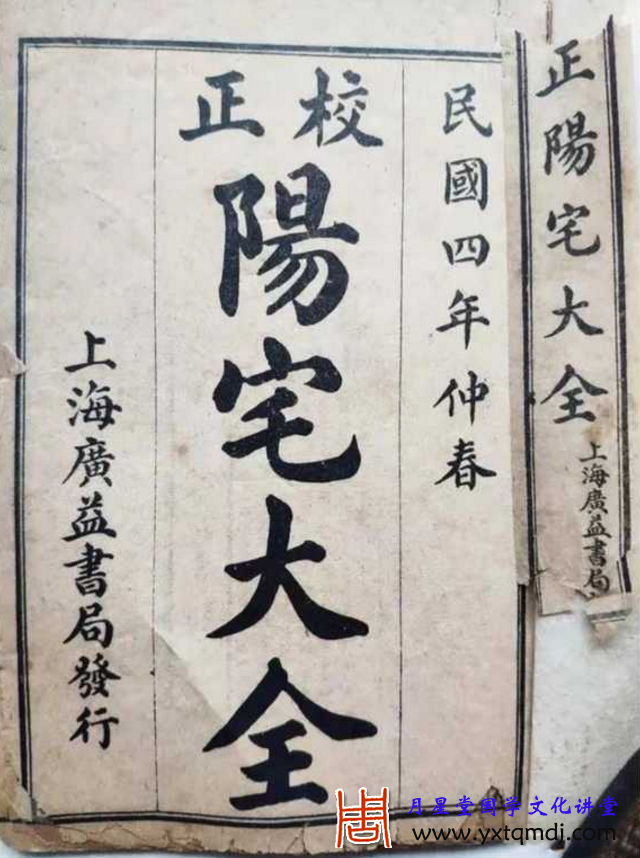 民國四年仲春
校正
陽宅大全
上海廣益書局發行
正陽宅大全
上海廣益書局
月星堂国学文化讲堂
www.yxtqmdj.com